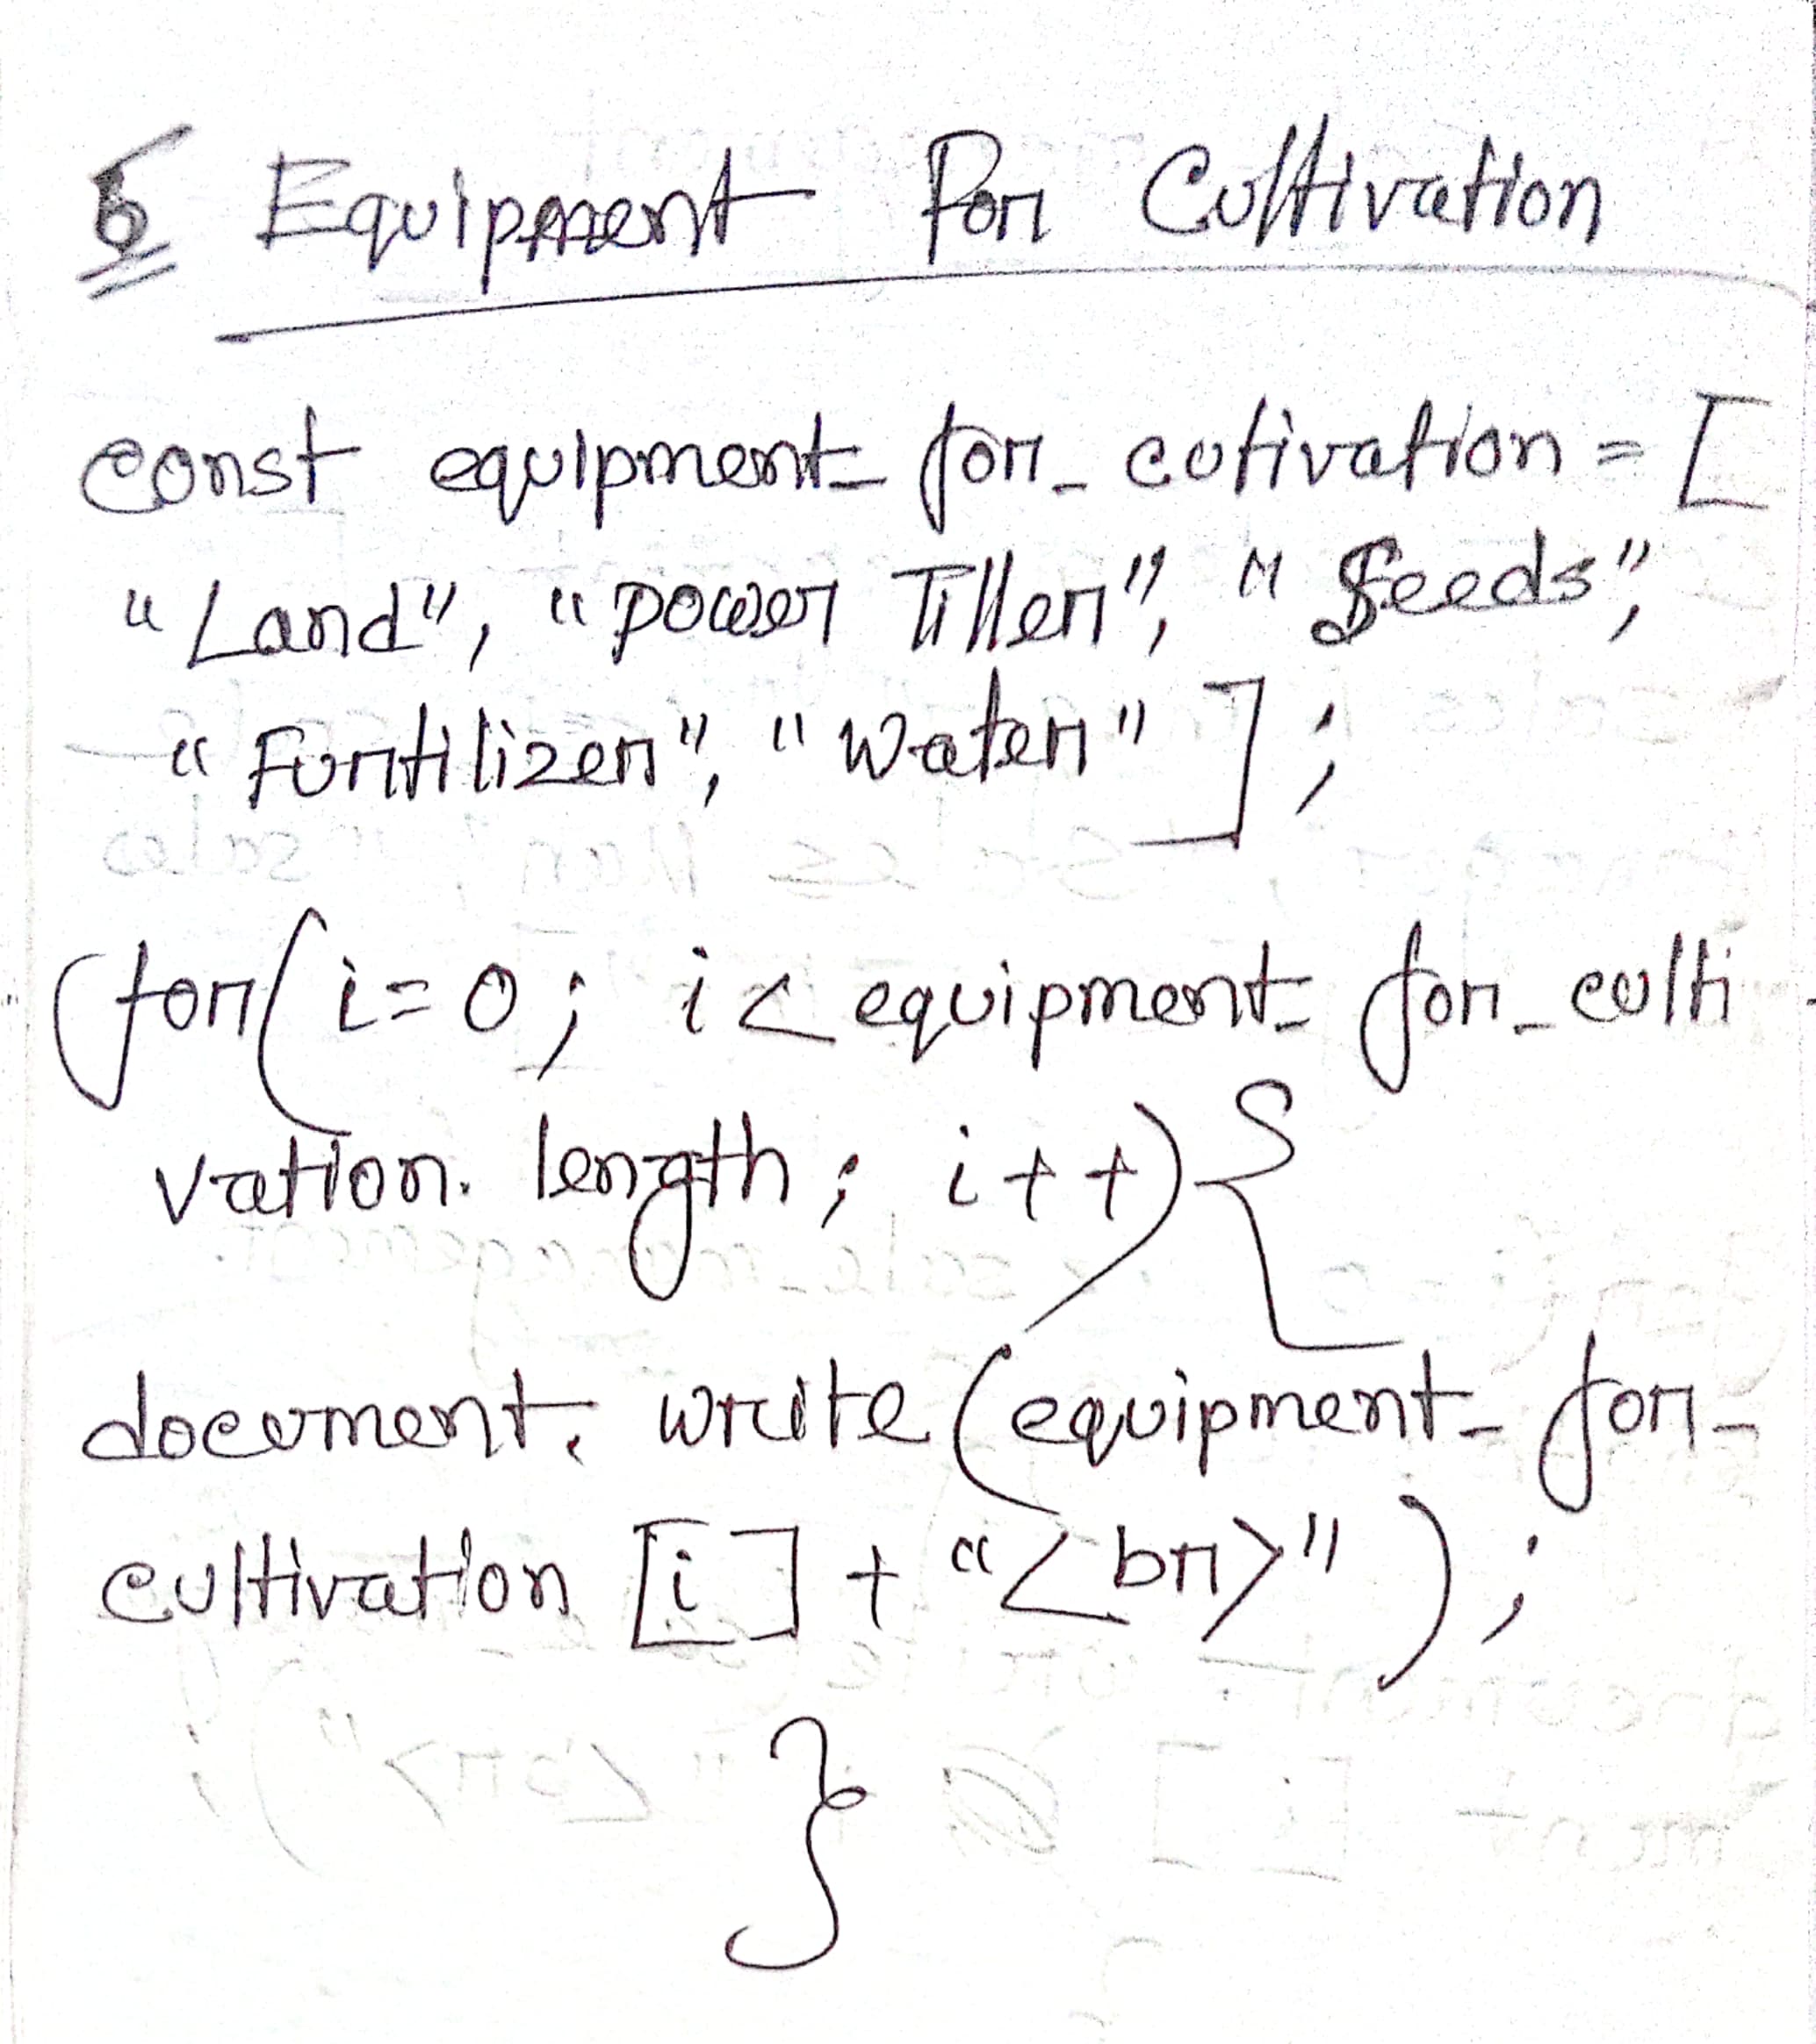 6 Equipment For Cultivation
const equipment_for_cutivation = [
"Land", "power Tiller", "Seeds",
"Furtilizer", "Water"];
for(i=0; i<equipment_for_culti-
vation.length; i++){
document.write(equipment_for_
cultivation[i]+"<br>");
}